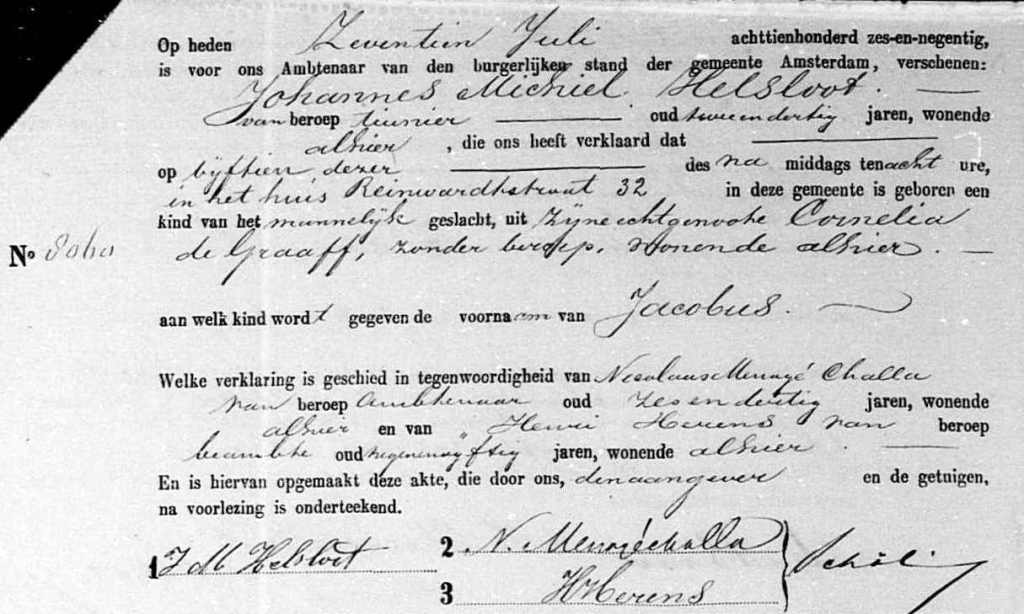 Op heden Zeventien Juli achttienhonderd zes-en-negentig,
is voor ons Ambtenaar van den burgerlijken stand der gemeente Amsterdam, verschenen:
Johannes Michiel Helsloot.
van beroep tuinier oud twee en dertig jaren, wonende
alhier, die ons heeft verklaard dat
op vijftien dezer des na middags ten acht ure,
in het huis Reinwardtstraat 32 in deze gemeente is geboren een
kind van het mannelijk geslacht, uit zijne echtgenoote Cornelia
No de Graaff, zonder beroep, wonende alhier.
aan welk kind wordt gegeven de voornaam van Jacobus.
Welke verklaring is geschied in tegenwoordigheid van Nicolaas Menagé Challa
van beroep Ambtenaar oud zes en dertig jaren, wonende
alhier en van Henri Herens van beroep
beambte oud negen en vijftig jaren, wonende alhier.
En is hiervan opgemaakt deze akte, die door ons, den aangever en de getuigen,
na voorlezing is onderteekend.
1 J M Helsloot 2 N. Menagé Challa
3 H Herens